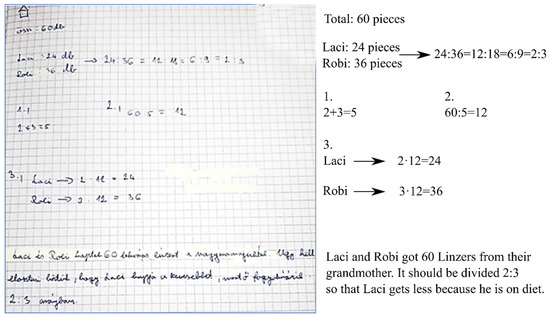 össz: 60 db
Laci: 24 db → 24:36 = 12:18 = 6:9 = 2:3
Robi: 36 db
1.)
2+3=5
2.) 60:5 = 12
3.) Laci → 2 · 12 = 24
Robi → 3 · 12 = 36
Laci és Robi kaptak 60 lekváros linzert a nagymamájuktól. Úgy kell
elosztani, hogy Laci kapja a kevesebbet, mert ő fogyókúrázik.
2:3 arányban.
Total: 60 pieces
Laci: 24 pieces
Robi: 36 pieces
24:36=12:18=6:9=2:3
1.
2+3=5
2.
60:5=12
3.
Laci → 2·12=24
Robi → 3·12=36
Laci and Robi got 60 Linzers from their
grandmother. It should be divided 2:3
so that Laci gets less because he is on diet.